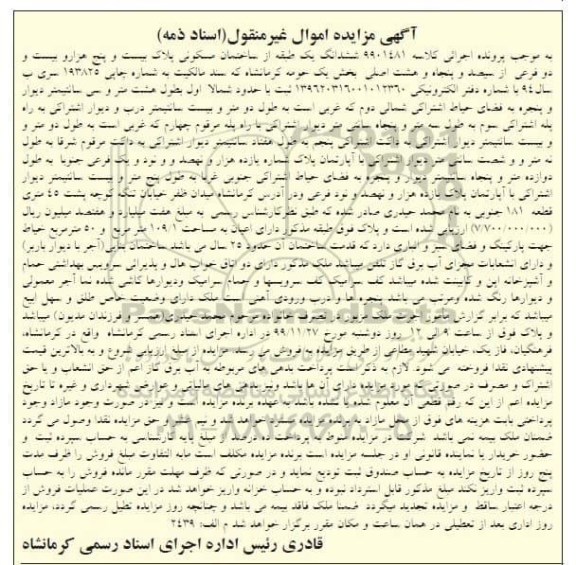 آگهی مزایده اموال غیرمنقول(اسناد ذمه)
به موجب پرونده اجرائی کلاسه ۹۹۰۱۴۸۱ ششدانگ یک طبقه از ساختمان مسکونی پلاک بیست و پنج هزارو بیست و
دو فرعی از سیصد و پنجاه و هشت اصلی بخش یک حومه کرمانشاه که سند مالکیت به شماره چاپی ۱۹۳۸۲۵ سری ب
سال۹۴ با شماره دفتر الکترونیکی ۱۳۹۶۲۰۳۱۶۰۰۱۰۱۲۳۶۰ ثبت با حدود شمالا اول بطول هشت متر و سی سانتیمتر دیوار
و پنجره به فضای حیاط اشتراکی شمالی دوم که غربی است به طول دو متر و بیست سانتیمتر درب و دیوار اشتراکی به راه
پله اشتراکی سوم به طول سه متر و پنجاه سانتی متر دیوار اشتراکی با راه پله مرقوم چهارم که غربی است به طول دو متر و
بیست سانتیمتر دیوار اشتراکی به داکت اشتراکی پنجم به طول هفتاد سانتیمتر دیوار اشتراکی به داکت مرقوم شرقا به طول
نه متر و و شصت سانتیمتر با آپارتمان پلاک شماره یازده هزار و نهصد و نود و یک فرعی جنوبا به طول
دوازده متر و پنجاه سانتیمتر دیوار و پنجره به فضای حیاط اشتراکی جنوبی غربا به طول پنج متر و بیست سانتیمتر دیوار
اشتراکی با آپارتمان پلاک یازده هزار و نهصد و نود فرعی ودر آدرس کرمانشاه میدان ظفر خیابان تنگه کوچه پشت ۴۵ متری
قطعه ۱۸۱ جنوبی به نام محمد حیدری صادر شده که طبق نظرکارشناس رسمی به مبلغ هفت میلیارد و هفتصد میلیون ریال
(۷/۷۰۰/۰۰۰/۰۰۰) ارزیابی شده است و پلاک فوق طبقه مذکور دارای اعیان به مساحت ۱۰۹/۱ متر مربع و ۵۰ مترمربع حیاط
جهت پارکینگ و فضای سبز و انباری دارد که قدمت ساختمان آن حدود ۲۵ سال می باشد.ساختمان بنایی (آجر با دیوار باربر)
و دارای انشعابات مجزای آب برق گاز تلفن میباشد ملک مذکور دارای دو اتاق خواب هال و پذیرائی سرویس بهداشتی حمام
و آشپزخانه اپن و کابینت شده میباشد کف سرامیک کف سرویسها و حمام سرامیک ودیوارها کاشی شده نما آجر معمولی
و دیوارها رنگ شده ومرتب می باشد پنجره ها و درب ورودی آهنی است ملک دارای وضعیت خاص طلق و سهل البیع
میباشد که برابر گزارش مامور اجرا ملک در تصرف میباشد
و پلاک فوق از ساعت ۹ الی ۱۲ روز دوشنبه مورخ ۹۹/۱۱/۲۷ در اداره اجرای اسناد رسمی کرمانشاه واقع در کرمانشاه،
فرهنگیان، فاز یک، خیابان شهید مطاعی از طریق مزایده به فروش می رسد مزایده از مبلغ ارزیابی شروع و به بالاترین قیمت
پیشنهادی نقدا فروخته می شود لازم به ذکر است پرداخت بدهی های مربوطه به آب برق گاز اعم از حق انشعاب و یا حق
اشتراک و مصرف در صورتی که مورد مزایده دارای آن ها باشد ونیز بدهی های مالیاتی و عوارض شهرداری و غیره تا تاریخ
مزایده اعم از این که رقم قطعی آن معلوم شده یا نشده باشد به عهده برنده مزایده است و نیز در صورت وجود مازاد وجوه
پرداختی بابت هزینه های فوق از محل مازاد به برنده مزایده مسترد خواهد شد و نیم عشر و حق مزایده نقدا وصول می گردد
ضمنان ملک بیمه نمی باشد شرکت در مزایده منوط به پرداخت ده درصد از مبلغ پایه کارشناسی به حساب سپرده ثبت و
حضور خریدار یا نماینده قانونی او در جلسه مزایده است برنده مزایده مکلف است مابه التفاوت مبلغ فروش را ظرف مدت
پنج روز از تاریخ مزایده به حساب صندوق ثبت تودیع نماید و در صورتی که ظرف مهلت مقرر مانده فروش را به حساب
سپرده ثبت واریز نکند مبلغ مذکور قابل استرداد نبوده و به حساب خزانه واریز خواهد شد در این صورت عملیات فروش از
درجه اعتبار ساقط و مزایده تجدید میگردد ضمنا ملک فاقد بیمه می باشد و چنانچه روز مزایده تطیل رسمی گردد، مزایده
روز اداری بعد از تعطیلی در همان ساعت و مکان مقرر برگزار خواهد شد م الف: ۲۴۳۹
قادری رئیس اداره اجرای اسناد رسمی کرمانشاه
ParsNamadData
۰۲۱-۸۸۳۴۹۶۷۰-۵